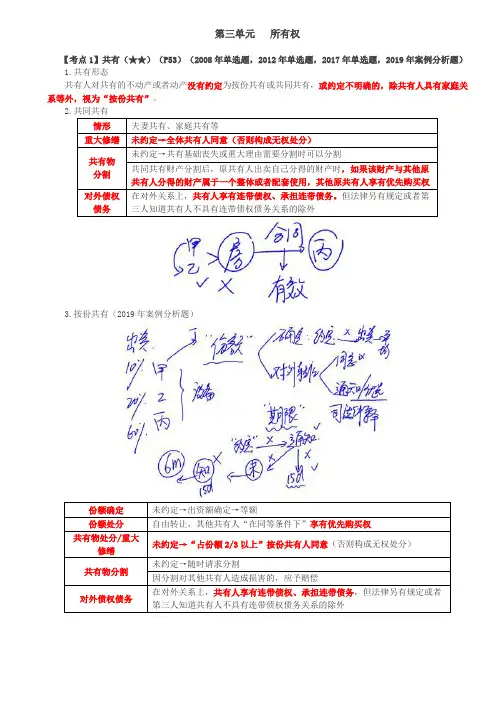 第三单元 所有权
【考点1】共有（★★）（P53）（2008年单选题，2012年单选题，2017年单选题，2019年案例分析题）
1.共有形态
共有人对共有的不动产或者动产没有约定为按份共有或共同共有，或约定不明确的，除共有人具有家庭关
系等外，视为“按份共有”。
2.共同共有
情形 夫妻共有、家庭共有等
重大修缮 未约定→全体共有人同意（否则构成无权处分）
共有物
分割
未约定→共有基础丧失或重大理由需要分割时可以分割
共同共有财产分割后，原共有人出卖自己分得的财产时，如果该财产与其他原
共有人分得的财产属于一个整体或者配套使用，其他原共有人享有优先购买权
对外债权
债务
在对外关系上，共有人享有连带债权、承担连带债务，但法律另有规定或者第
三人知道共有人不具有连带债权债务关系的除外
甲 房 合同 丙
乙
有效
3.按份共有（2019年案例分析题）
出资
10% 甲
20% 乙
60% 丙
设备
“份额”
对外转让
同意×
司法解释
“期限”
“约定” × 通知 ✓
6m 知 × 未
15d 15d ✓
份额确定 未约定→出资额确定→等额
份额处分 自由转让，其他共有人“在同等条件下”享有优先购买权
共有物处分/重大
修缮
未约定→“占份额2/3以上”按份共有人同意（否则构成无权处分）
共有物分割
未约定→随时请求分割
因分割对其他共有人造成损害的，应予赔偿
对外债权债务
在对外关系上，共有人享有连带债权、承担连带债务，但法律另有规定或者
第三人知道共有人不具有连带债权债务关系的除外